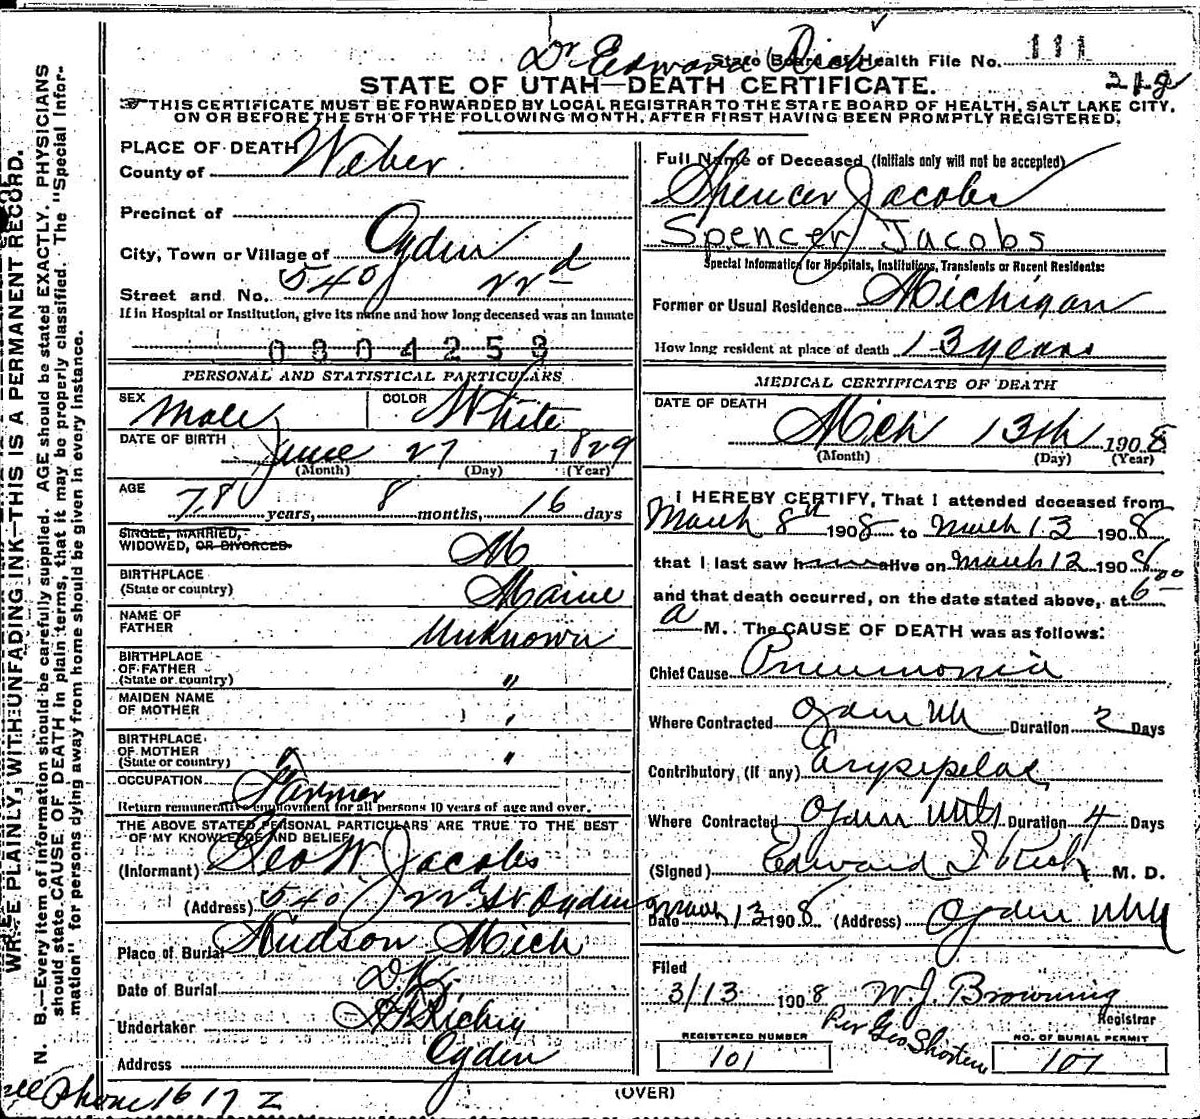 Dr Edward Rich
State Board of Health File No. 111
212
STATE OF UTAH—DEATH CERTIFICATE.
THIS CERTIFICATE MUST BE FORWARDED BY LOCAL REGISTRAR TO THE STATE BOARD OF HEALTH, SALT LAKE CITY,
ON OR BEFORE THE 5TH OF THE FOLLOWING MONTH, AFTER FIRST HAVING BEEN PROMPTLY REGISTERED.
WRITE PLAINLY, WITH UNFADING INK—THIS IS A PERMANENT RECORD.
N. B.—Every item of Information should be carefully supplied. AGE should be stated EXACTLY. PHYSICIANS
should state CAUSE OF DEATH in plain terms, that it may be properly classified. The "Special Infor-
mation" for persons dying away from home should be given in every instance.
PLACE OF DEATH
County of Weber
Precinct of
City, Town or Village of Ogden
Street and No. 540 22nd
If in Hospital or Institution, give its name and how long deceased was an inmate
0804253
PERSONAL AND STATISTICAL PARTICULARS
SEX Male COLOR White
DATE OF BIRTH June 27 1829
(Month) (Day) (Year)
AGE
78 years, 8 months, 16 days
SINGLE, MARRIED,
WIDOWED, OR DIVORCED M
BIRTHPLACE
(State or country) Maine
NAME OF
FATHER Unknown
BIRTHPLACE
OF FATHER
(State or country) "
MAIDEN NAME
OF MOTHER "
BIRTHPLACE
OF MOTHER
(State or country) "
OCCUPATION Farmer
Return remunerative employment for all persons 10 years of age and over.
THE ABOVE STATED PERSONAL PARTICULARS ARE TRUE TO THE BEST
OF MY KNOWLEDGE AND BELIEF
(Informant) Geo W Jacobs
(Address) 540 22nd St Ogden
Place of Burial Hudson Mich
Date of Burial D.K.
Undertaker Richey
Address Ogden
Phone 1617 Z
Full Name of Deceased (Initials only will not be accepted)
Spencer Jacobs
Spencer Jacobs
Special Information for Hospitals, Institutions, Transients or Recent Residents:
Former or Usual Residence Michigan
How long resident at place of death 13 years
MEDICAL CERTIFICATE OF DEATH
DATE OF DEATH
Mch 13th 1908
(Month) (Day) (Year)
I HEREBY CERTIFY, That I attended deceased from
March 8th 1908 to March 13 1908
that I last saw h alive on March 12 1908
and that death occurred, on the date stated above, at 6 00
a M. The CAUSE OF DEATH was as follows:
Chief Cause Pneumonia
Where Contracted Ogden Utah Duration 2 Days
Contributory (if any) Erysipelas
Where Contracted Ogden Utah Duration 4 Days
(Signed) Edward I Rich M. D.
Date Mar 13 1908 (Address) Ogden Utah
Filed
3/13 1908 W. J. Browning
Registrar
Per Geo Shorten
REGISTERED NUMBER
101
NO. OF BURIAL PERMIT
101
(OVER)